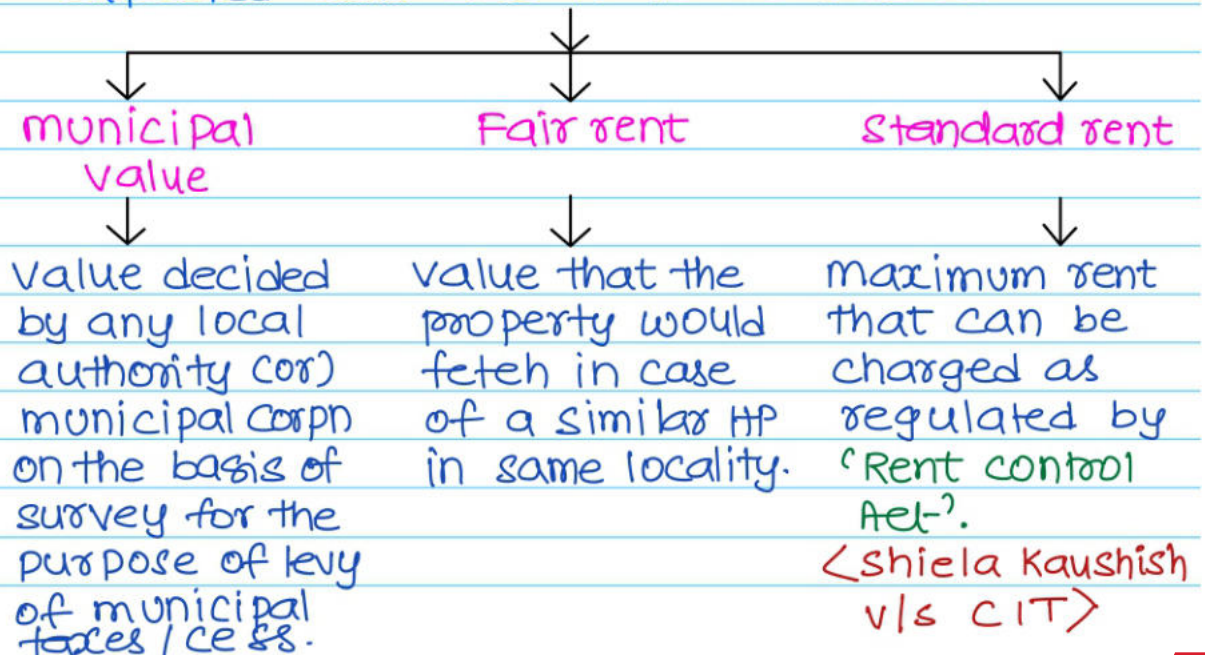 municipal
value
Fair rent
Standard rent
value decided
by any local
authority (or)
municipal corpn
on the basis of
survey for the
purpose of levy
of municipal
taxes / cess.
value that the
property would
fetch in case
of a similar HP
in same locality.
maximum rent
that can be
charged as
regulated by
'Rent control
Act'.
<Shiela Kaushish
v/s CIT>